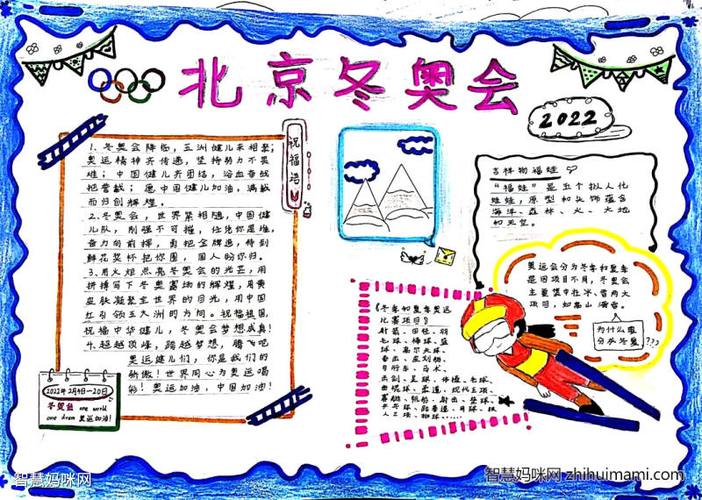 北京冬奥会
2022
祝福语
1.冬奥会降临,五洲健儿来相聚;
奥运精神齐传递,坚持努力不畏
难;中国健儿齐团结,浴血奋战
愿中国健儿加油,满载
而归创辉煌。
2.冬奥会,世界紧相随,中国健
儿队,刚强不可摧,任凭你是谁,
奋力向前挥,勇把金牌追,得到
鲜花奖杯把你围,国人盼你归。
3.用火炬点亮冬奥会的光芒,用
拼搏写下冬奥赛场的辉煌,用黄
皮肤凝聚全世界的目光,用中国
红引领五大洲的方向。祝福祖国,
祝福中华健儿,冬奥会梦想成真!
4.超越顶峰,跨越梦想,腾飞吧
奥运健儿们,你是我们的
骄傲!世界同心为奥运喝
彩!奥运加油,中国加油!
2022年2月4日-20日
冬奥会 one world
one dream 奥运加油!
吉祥物福娃
“福娃”是五个拟人化
娃娃,原型和头饰蕴含
海洋、森林、火、大地
和天空。
奥运会分为冬季和夏季
是因项目不同,冬奥会
主要集中在冰、雪两大
项目,如高山滑雪。
为什么要
分冬夏???
《冬季和夏季奥运
比赛项目》
射箭、田径、羽
毛球、棒球、篮
球、高尔夫球、
拳击、皮划艇、
自行车、马术、
击剑、足球、体操、手球、
曲棍球、柔道、现代五项、
赛艇、帆船、射击、垒球、
乒乓球、跆拳道、网球、铁
人三项、排球……
智慧妈咪网
智慧妈咪网 zhihuimami.com